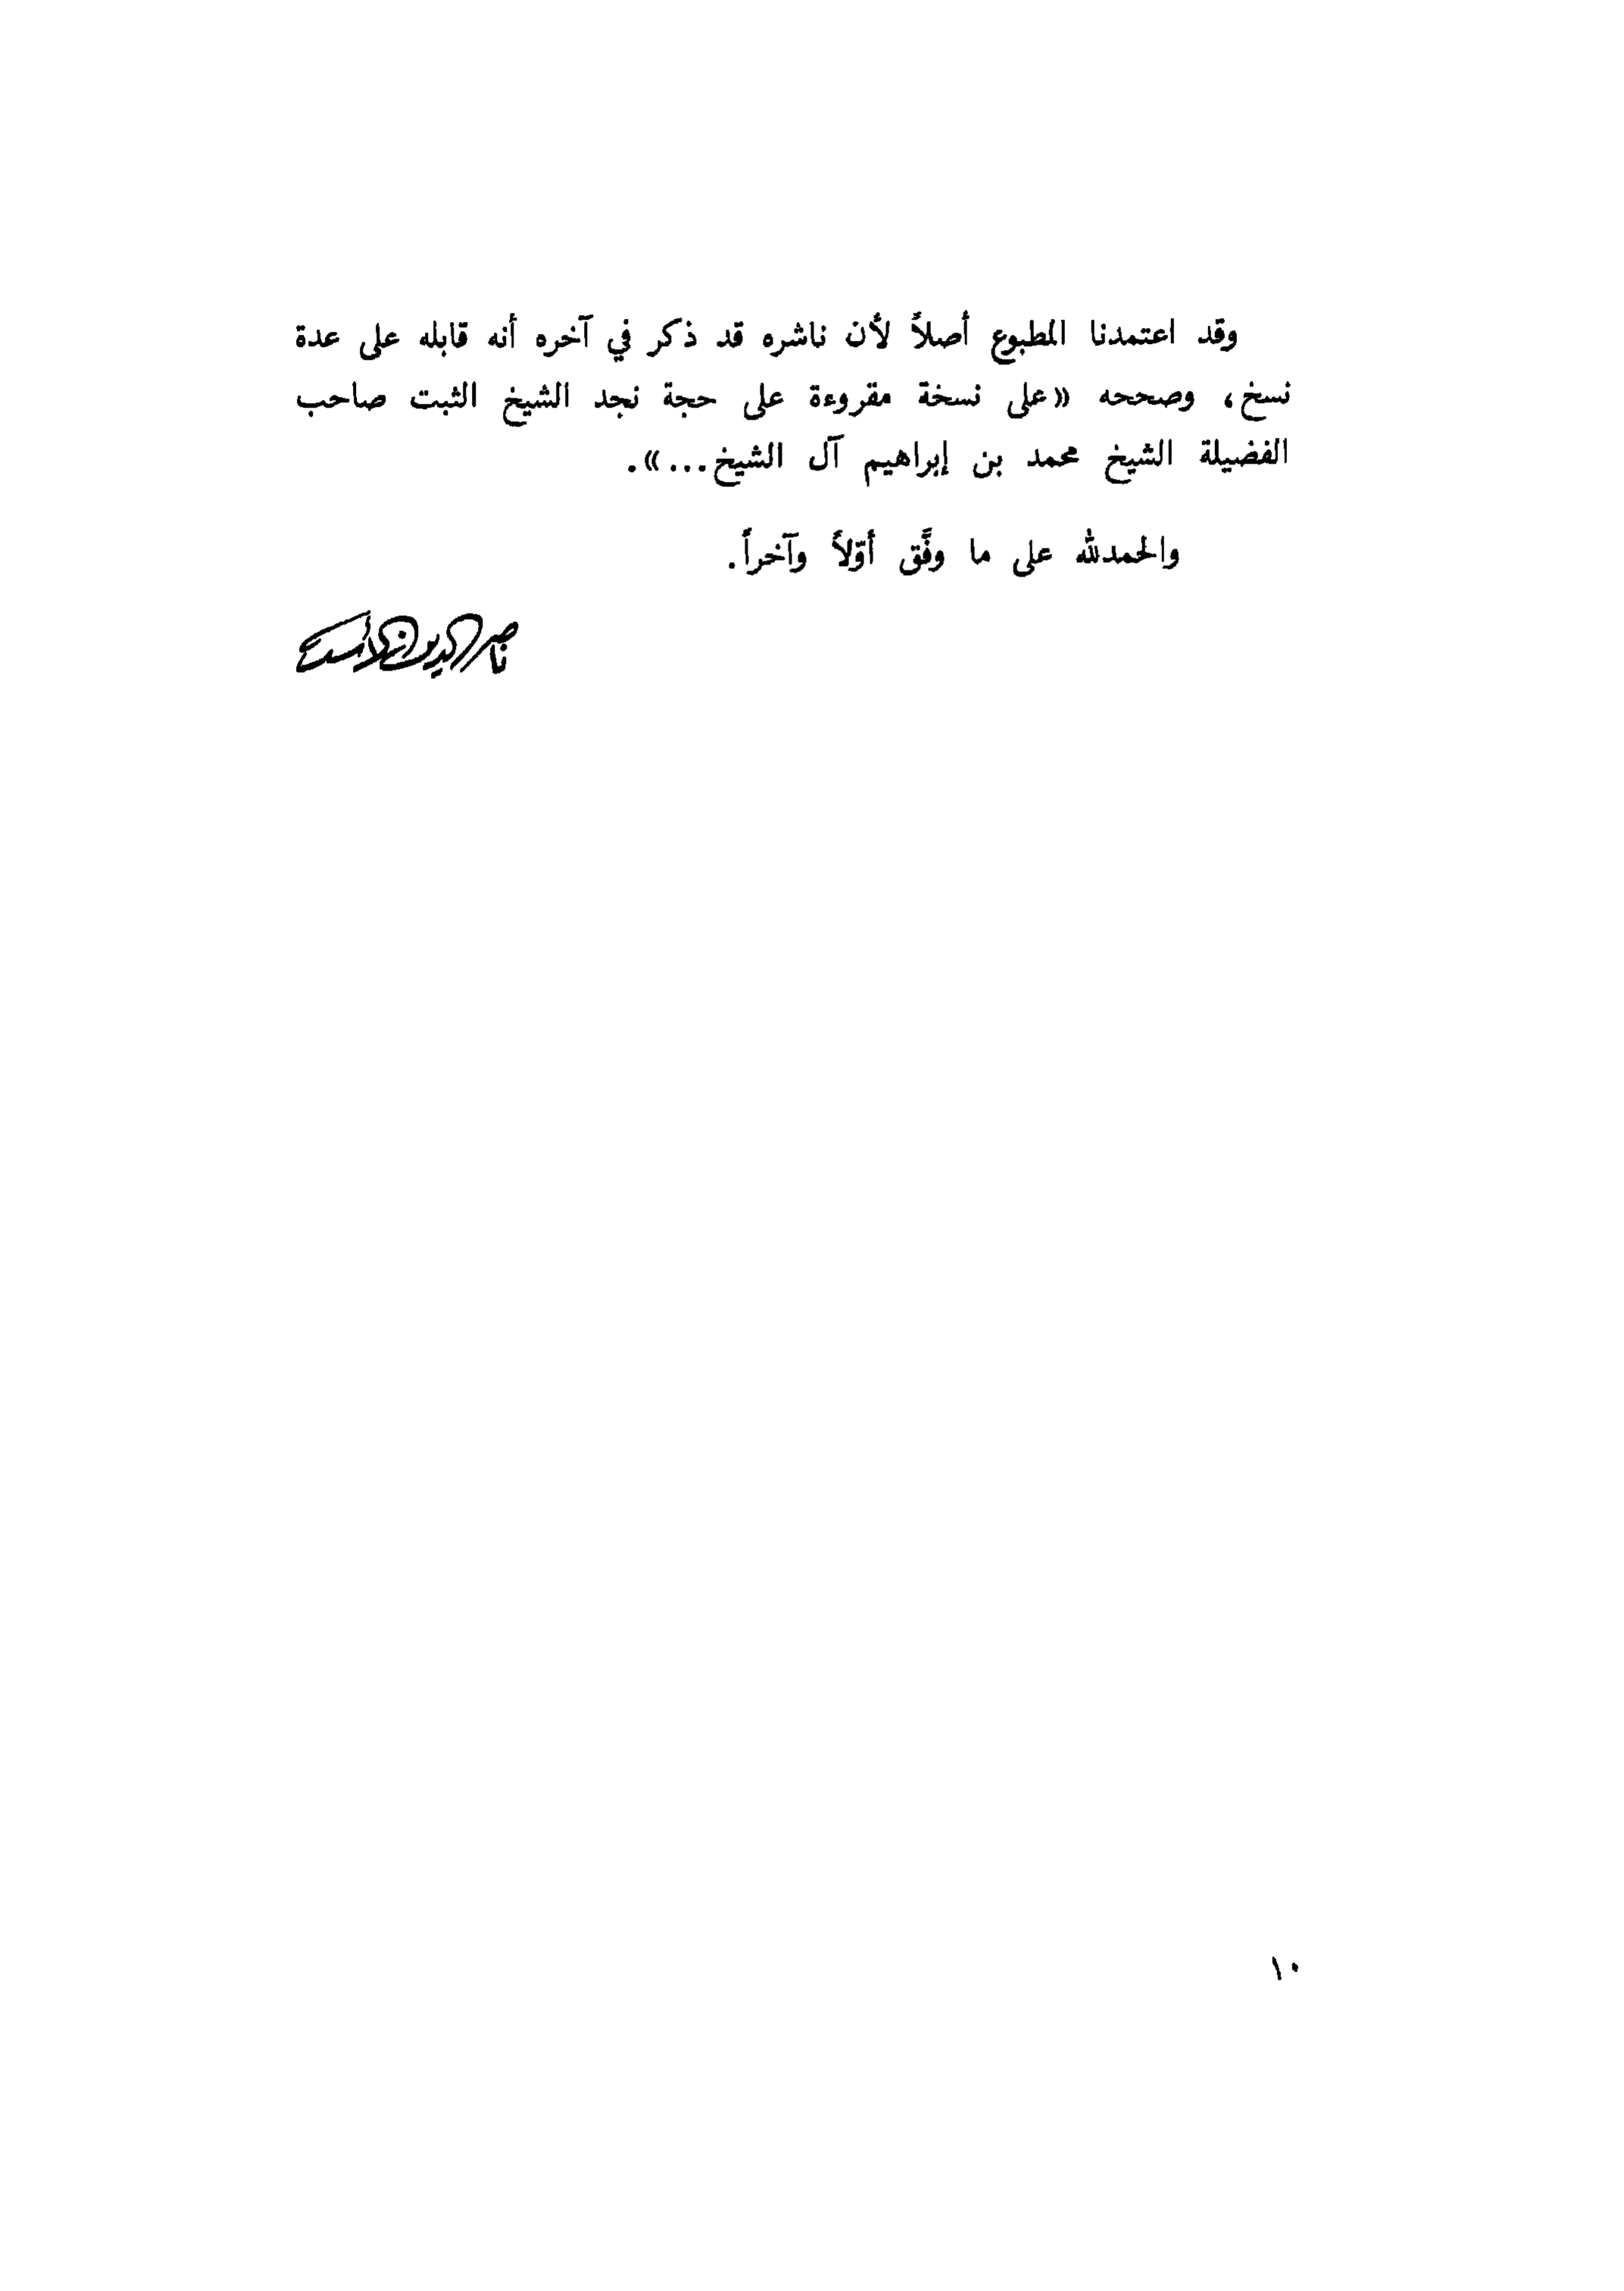 وقد اعتمدنا المطبوع أصلاً لأن ناشره قد ذكر في آخره أنه قابله على عدة
نسخ، وصححه «على نسخة مقروءة على حجة نجد الشيخ الثبت صاحب
الفضيلة الشيخ محمد بن إبراهيم آل الشيخ...».
والحمدلله على ما وفَّق أوّلاً وآخراً.
ناصر الدين الأسد
١٠